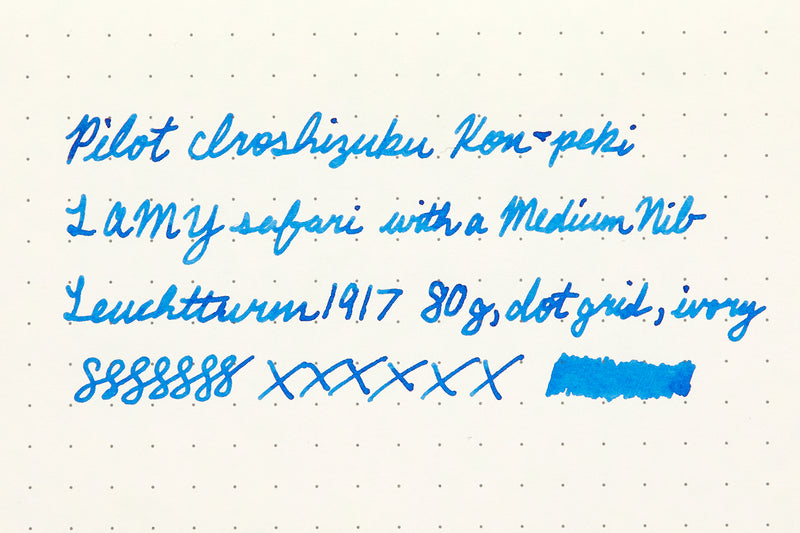 Pilot Iroshizuku Kon-peki
LAMY safari with a Medium Nib
Leuchtturm1917 80g, dot grid, ivory
SSSSSSSS XXXXXX